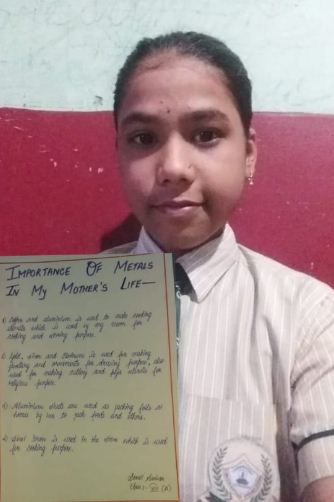 IMPORTANCE OF METALS
IN MY MOTHER'S LIFE—
1) Copper and aluminium is used to make cooking
utensils which is used by my mom for
cooking and serving purpose.
2) Gold, silver and platinum is used for making
jewellery and ornaments for dressing purpose, also
used for making cutlery and puja utensils for
religious purpose.
3) Aluminium sheets are used as packing foils at
homes by her to pack foods and others.
4) used in the which is used
for cooking purpose.
Class:- (A)